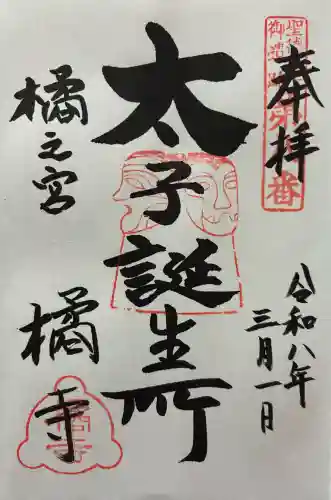 奉拝
聖徳
御遺跡
第八番
令和八年
三月一日
太子誕生所
橘之宮
橘寺